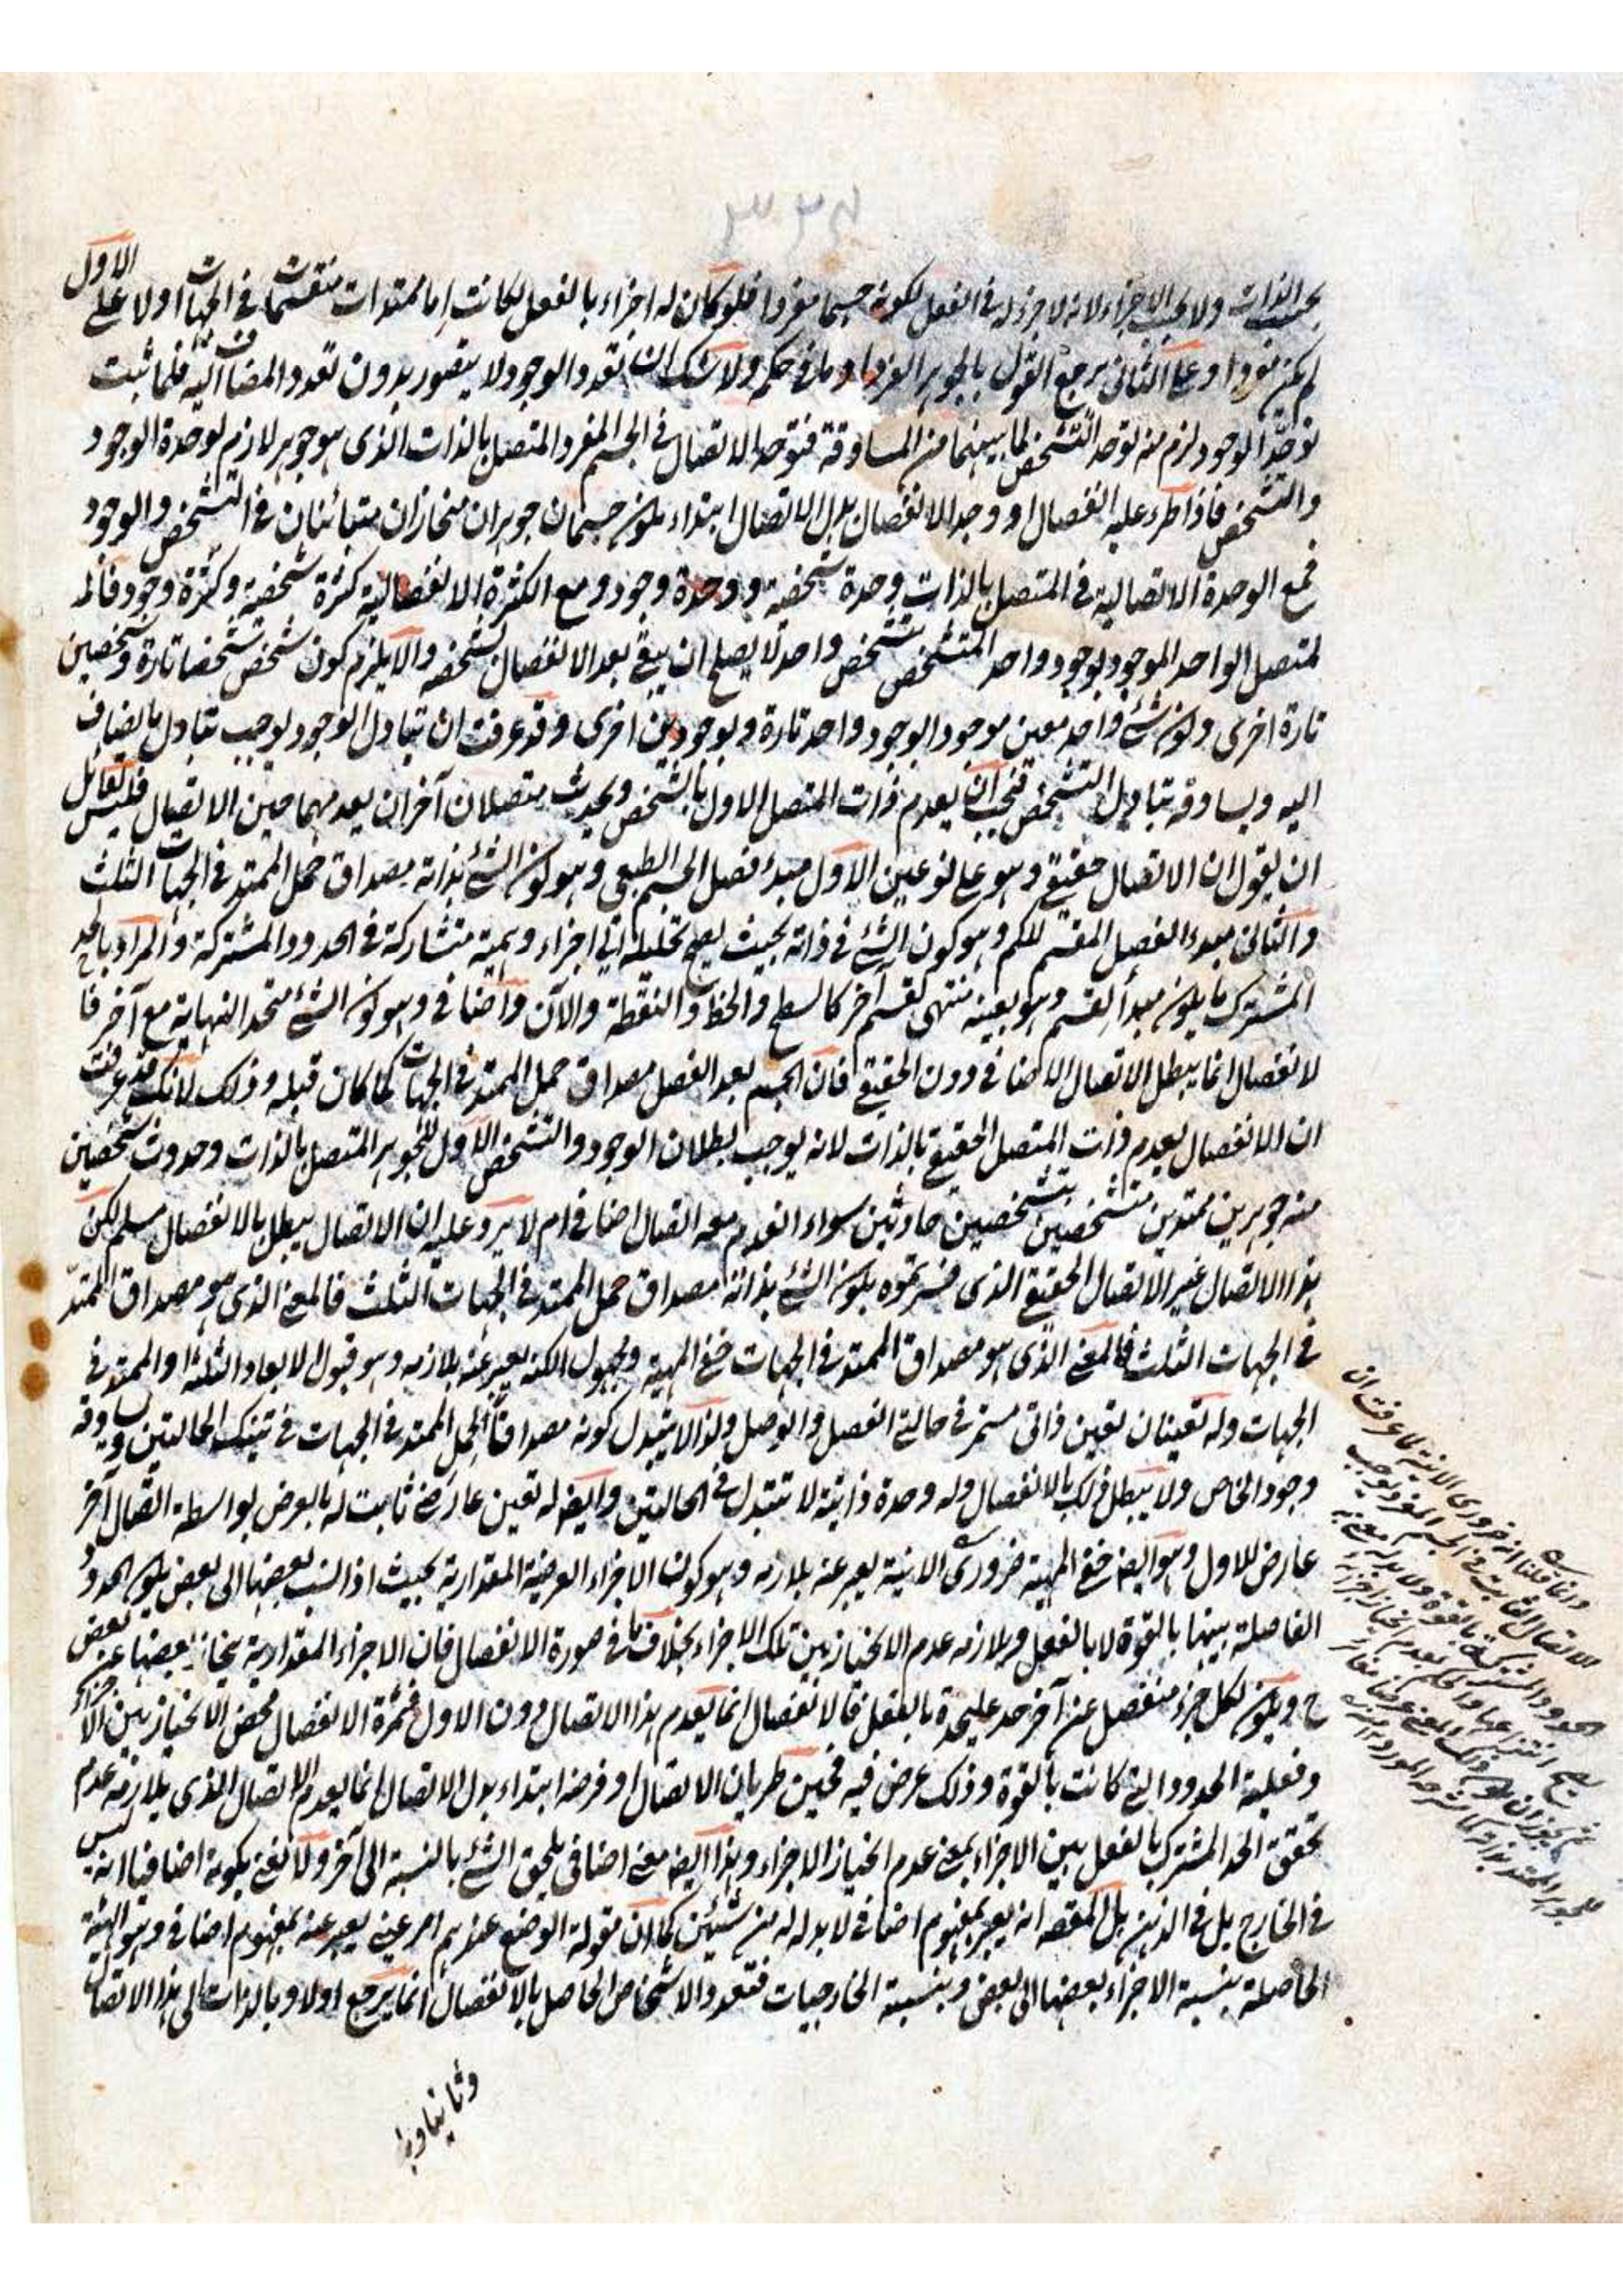 ٣٢٤
بحسب الذات ولا بحسب الاجزاء لانه لا جزء له فى الفعل لكونه جسما مفردا فلو كان له اجزاء بالفعل لكانت اما ممتدات منقسمات فى الجهات اولا على الاول
لم يكن مفردا وعلى الثانى يرجع القول بالجوهر الفرد او ما فى حكمه ولا شك ان تعدد الوجود لا يتصور بدون تعدد المضاف اليه فلما ثبت
توحد الوجود لزم منه توحد التشخص لما بينهما من المساوقة فتوحد الاتصال فى الجسم المفرد المتصل بالذات الذى هو جوهر لازم لوحدة الوجود
والتشخص فاذا طرء عليه الانفصال او وجد الانفصال بدل الاتصال ابتداء يكون جسمان جوهران منحازان متبائنان فى التشخص والوجود
فمع الوحدة الاتصالية فى المتصل بالذات وحدة شخصية ووحدة وجود ومع الكثرة الانفصالية كثرة شخصية وكثرة وجود فالم
لمتصل الواحد الموجود بوجود واحد المتشخص بتشخص واحد لا يصلح ان يبقى بعد الانفصال بشخصه والا يلزم كون شخص شخصا تارة وشخصين
تارة اخرى وكون شئ واحد معين موجودا بوجود واحد تارة وبوجودين اخرى وقد عرفت ان تبادل الوجود يوجب تبادل ما يضاف
اليه ويساوقه تبادل التشخص فيجب ان يعدم ذات المتصل الاول بالشخص ويحدث متصلان آخران بعدمهما حين الاتصال فليس لقائل
ان يقول ان الاتصال حقيقى وهو على نوعين الاول مبدء فصل الجسم الطبعى وهو كون الشئ بذاته مصداق حمل الممتد فى الجهات الثلث
والثانى مبدء الفصل المقسم للكم وهو كون الشئ فى ذاته بحيث يصح تحليله الى اجزاء وهمية متشاركة فى الحدود المشتركة والمراد بالحد
المشترك ما يكون مبدأ لقسم وهو بعينه منتهى لقسم آخر كالسطح والخط والنقطة والآن واضافى وهو كون الشئ متحد النهاية مع آخر فا
لانفصال انما يبطل الاتصال الاضافى دون الحقيقى فان الجسم بعد الفصل مصداق حمل الممتد فى الجهات كما كان قبله وذلك لانك قد عرفت
ان الانفصال يعدم ذات المتصل الحقيقى بالذات لانه يوجب بطلان الوجود والتشخص الاول للجوهر المتصل بالذات وحدوث شخصين
منه جوهرين ممتدين متشخصين بتشخصين حادثين سواء انعدم معه اتصال اضافى ام لا يرد عليه ان الاتصال يبطل بالانفصال مسلم لكن
هذا الاتصال غير الاتصال الحقيقى الذى فسرتموه بكون الشئ بذاته مصداق حمل الممتد فى الجهات الثلث فالمعنى الذى هو مصداق الممتد
فى الجهات الثلث فالمعنى الذى هو مصداق الممتد فى الجهات خفى المهية ومجهول الكنه يعبر عنه بلازمه وهو قبول الابعاد الثلثة او الممتد فى
الجهات وله تعينان تعين ذاتى مستمر فى حالتى الفصل والوصل ولذا لا يتبدل كونه مصداقا لحمل الممتد فى الجهات فى تينك الحالتين ويساوقه
وجود الخاص ولا يبطل ذلك بالانفصال وله وحدة ذاتية لا تتبدل فى الحالتين وايضا له تعين عارضى ثابت له بالعرض بواسطة اتصال آخر
عارض للاول وهو ايضا خفى المهية ضرورى الانية يعبر عنه بلازمه وهو كون الاجزاء العرضية المقدارية بحيث اذا نسب بعضها الى بعض يكون الحدود
الفاصلة بينها بالقوة لا بالفعل ويلازمه عدم الانحياز بين تلك الاجزاء بخلاف ما فى صورة الانفصال فان الاجزاء المقدارية ينحاز بعضها عن بعض
ح ويكون لكل جزء منفصل عن آخر حد عليحدة بالفعل فالانفصال انما يعدم هذا الاتصال دون الاول فثمرة الانفصال محض الانحياز بين الاجزاء
وفعلية الحدود التى كانت بالقوة وذلك عرض فيه فحين طريان الاتصال او فرضه ابتداء بدل الاتصال انما يعدم الاتصال الذى يلازمه عدم
تحقق الحد المشترك بالفعل بين الاجزاء بمعنى عدم انحياز الاجزاء وهذا ايضا معنى اضافى يلحق الشئ بالنسبة الى آخر ولا نعنى بكونه اضافيا انه ليس
فى الخارج بل فى الذهن بل المقصد انه يعبر بمفهوم اضافى لا بد له من شيئين كما ان مقولة الوضع عندهم امر عينى يعبر عنه بمفهوم اضافى وهو الهيئة
الحاصلة بنسبة الاجزاء بعضها الى بعض وبنسبة الخارجيات فتعدد الاشخاص الحاصل بالانفصال انما يرجع اولا وبالذات الى هذا الاتصال
وثانيا وبا
وانما قلنا انه ضرورى الانية لما عرفت ان
الاتصال الثابت فى الجسم المفرد يوجب
الحدود المشتركة بالقوة ولا بد له معنى به
يصح انتزاعها والحكم بعدم انحياز اجزائه
نعم يجوز ان يكون ذلك المعنى عرضا مغائر
للجوهر الممتد بذاته كما شرحه المورد